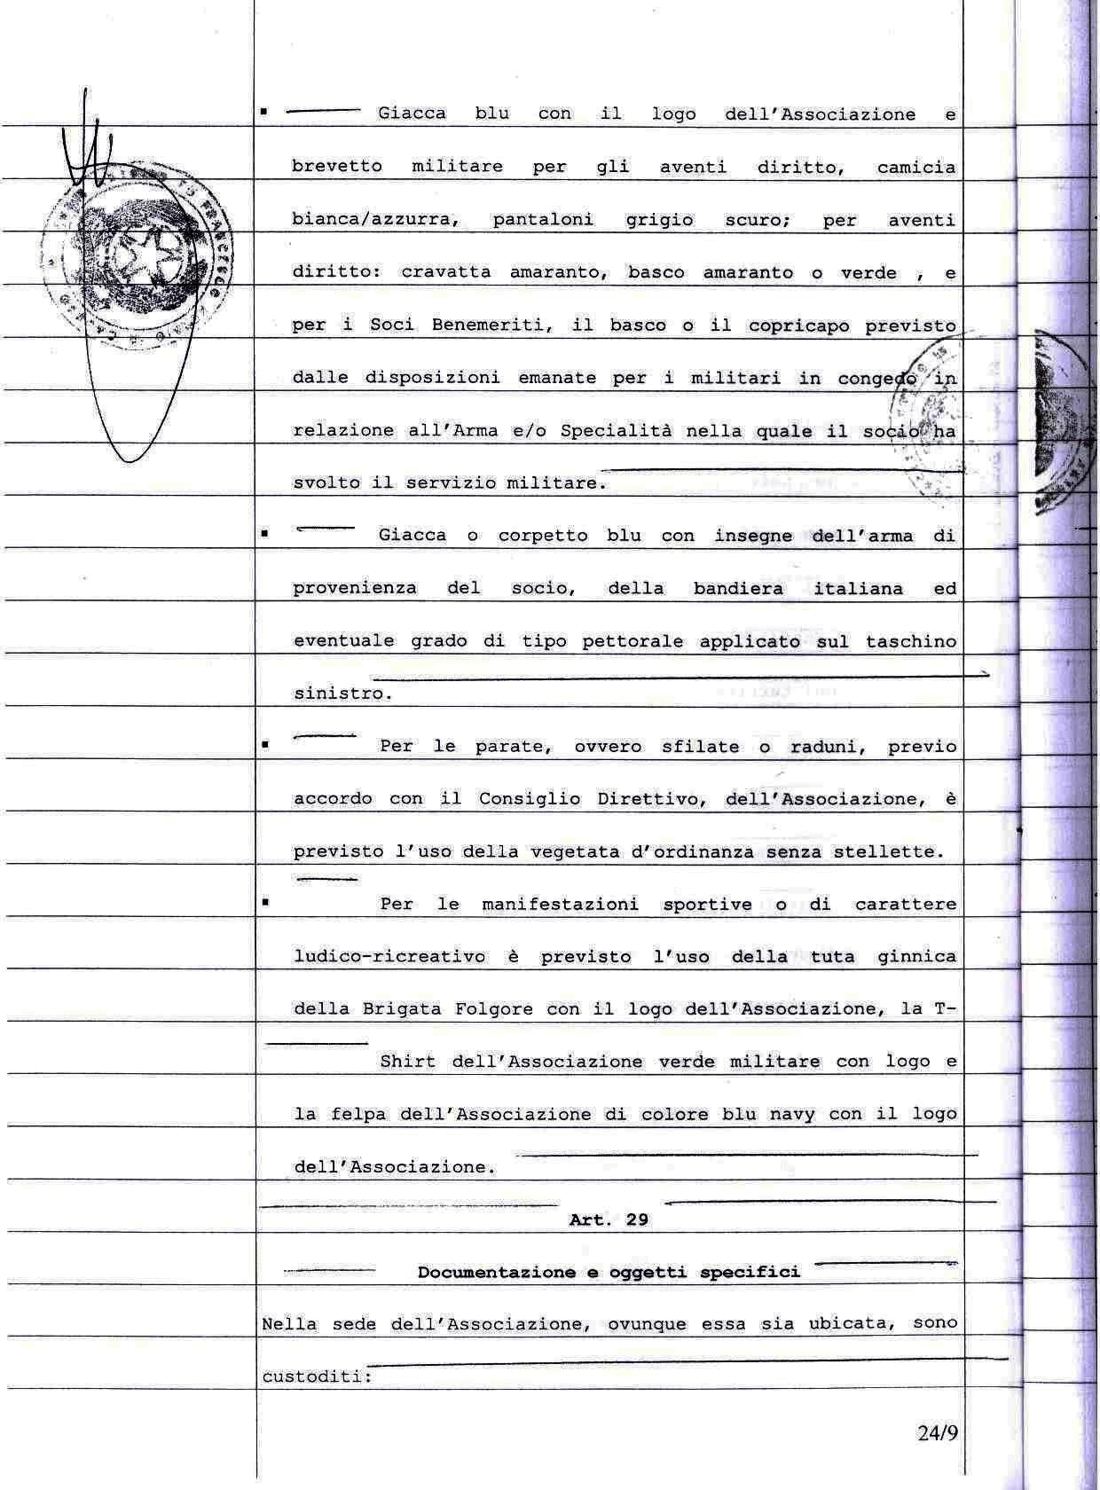 ▪ Giacca blu con il logo dell'Associazione e
brevetto militare per gli aventi diritto, camicia
bianca/azzurra, pantaloni grigio scuro; per aventi
diritto: cravatta amaranto, basco amaranto o verde , e
per i Soci Benemeriti, il basco o il copricapo previsto
dalle disposizioni emanate per i militari in congedo in
relazione all'Arma e/o Specialità nella quale il socio ha
svolto il servizio militare.
▪ Giacca o corpetto blu con insegne dell'arma di
provenienza del socio, della bandiera italiana ed
eventuale grado di tipo pettorale applicato sul taschino
sinistro.
▪ Per le parate, ovvero sfilate o raduni, previo
accordo con il Consiglio Direttivo, dell'Associazione, è
previsto l'uso della vegetata d'ordinanza senza stellette.
▪ Per le manifestazioni sportive o di carattere
ludico-ricreativo è previsto l'uso della tuta ginnica
della Brigata Folgore con il logo dell'Associazione, la T-
Shirt dell'Associazione verde militare con logo e
la felpa dell'Associazione di colore blu navy con il logo
dell'Associazione.
Art. 29
Documentazione e oggetti specifici
Nella sede dell'Associazione, ovunque essa sia ubicata, sono
custoditi:
24/9